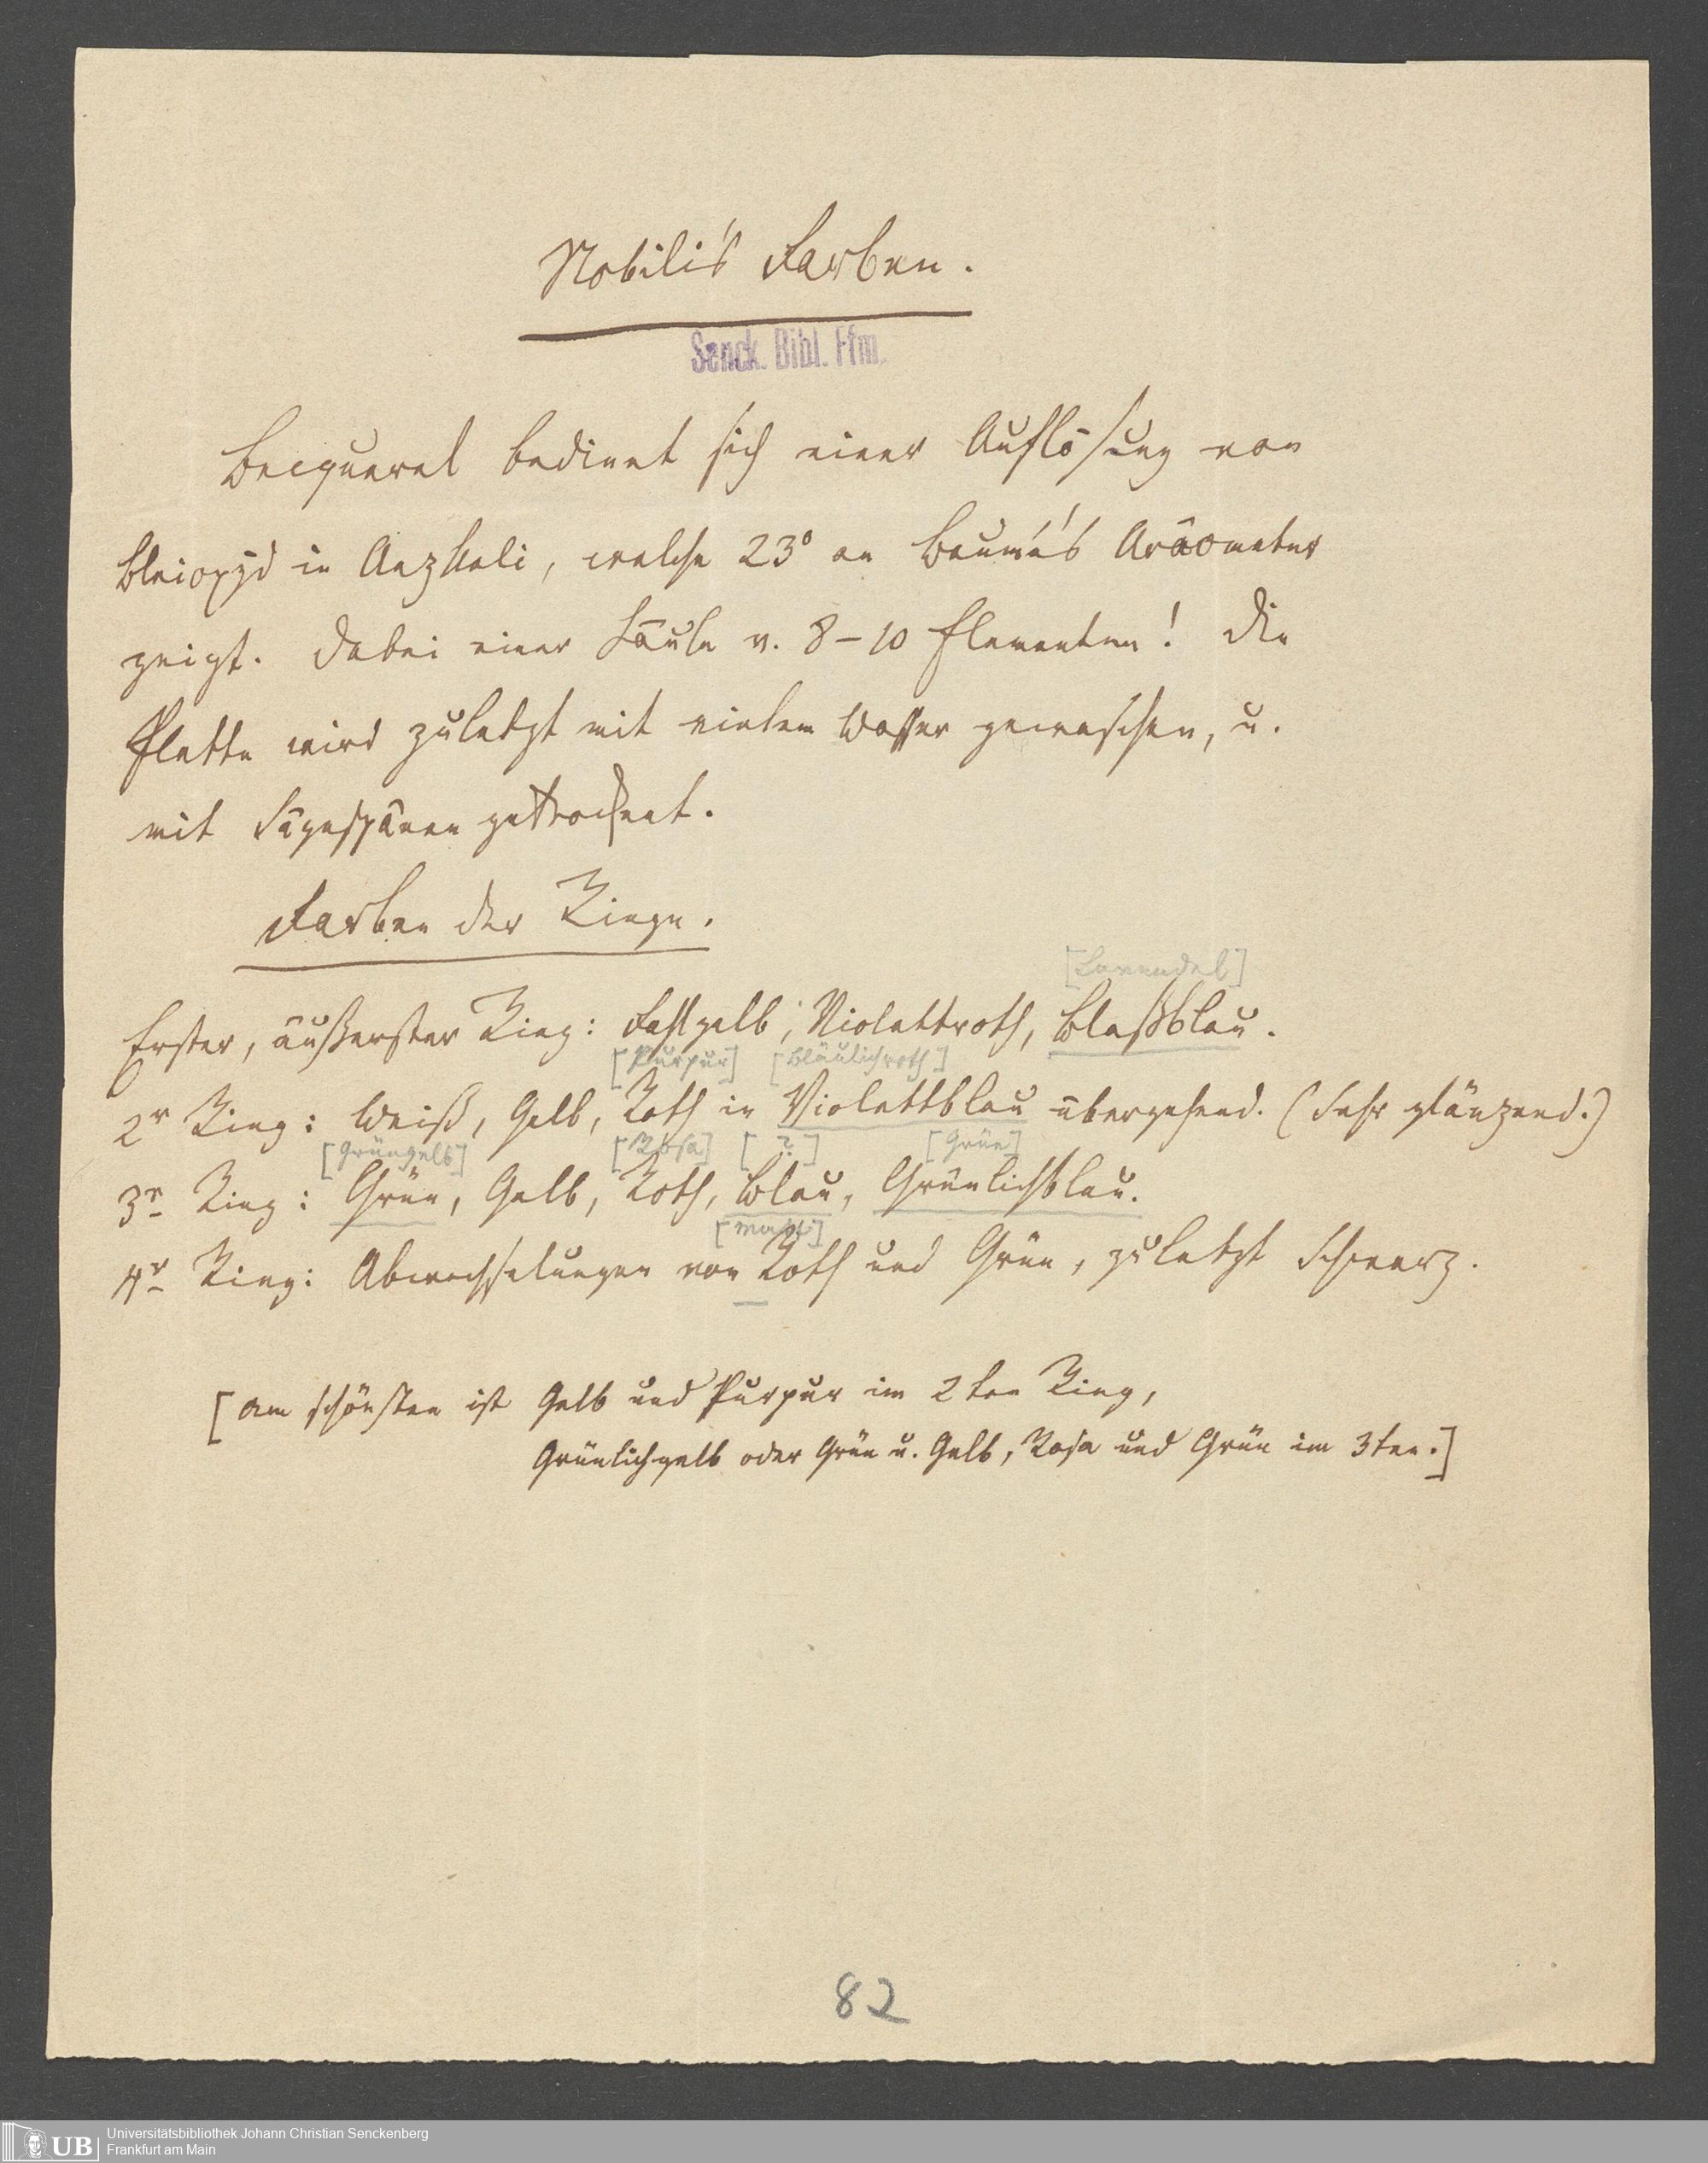 Nobili's Farben.
Senck. Bibl. Ffm.
Becquerel bedient sich einer Auflösung von
Bleioxyd in Aezkali, welche 23° an Baumé's Aräometer
zeigt. Dabei einer Säule v. 8–10 Elementen! Die
Platte wird zuletzt mit vielem Wasser gewaschen, u.
mit Sägespänen getrocknet.
Farben der Ringe.
[Lavendel]
Erster, äußerster Ring: Fahlgelb, Violettroth, Blaßblau.
[Purpur] [Bläulichroth]
2r Ring: Weiß, Gelb, Roth in Violettblau übergehend. (Sehr glänzend.)
[Grüngelb] [Rosa] [?] [Grün]
3r Ring: Grün, Gelb, Roth, Blau, Grünlichblau.
[matt]
4r Ring: Abwechselungen von Roth und Grün, zuletzt Schwarz.
[am schönsten ist Gelb und Purpur im 2ten Ring,
Grünlichgelb oder Grün u. Gelb, Rosa und Grün im 3ten.]
82
UB Universitätsbibliothek Johann Christian Senckenberg
Frankfurt am Main